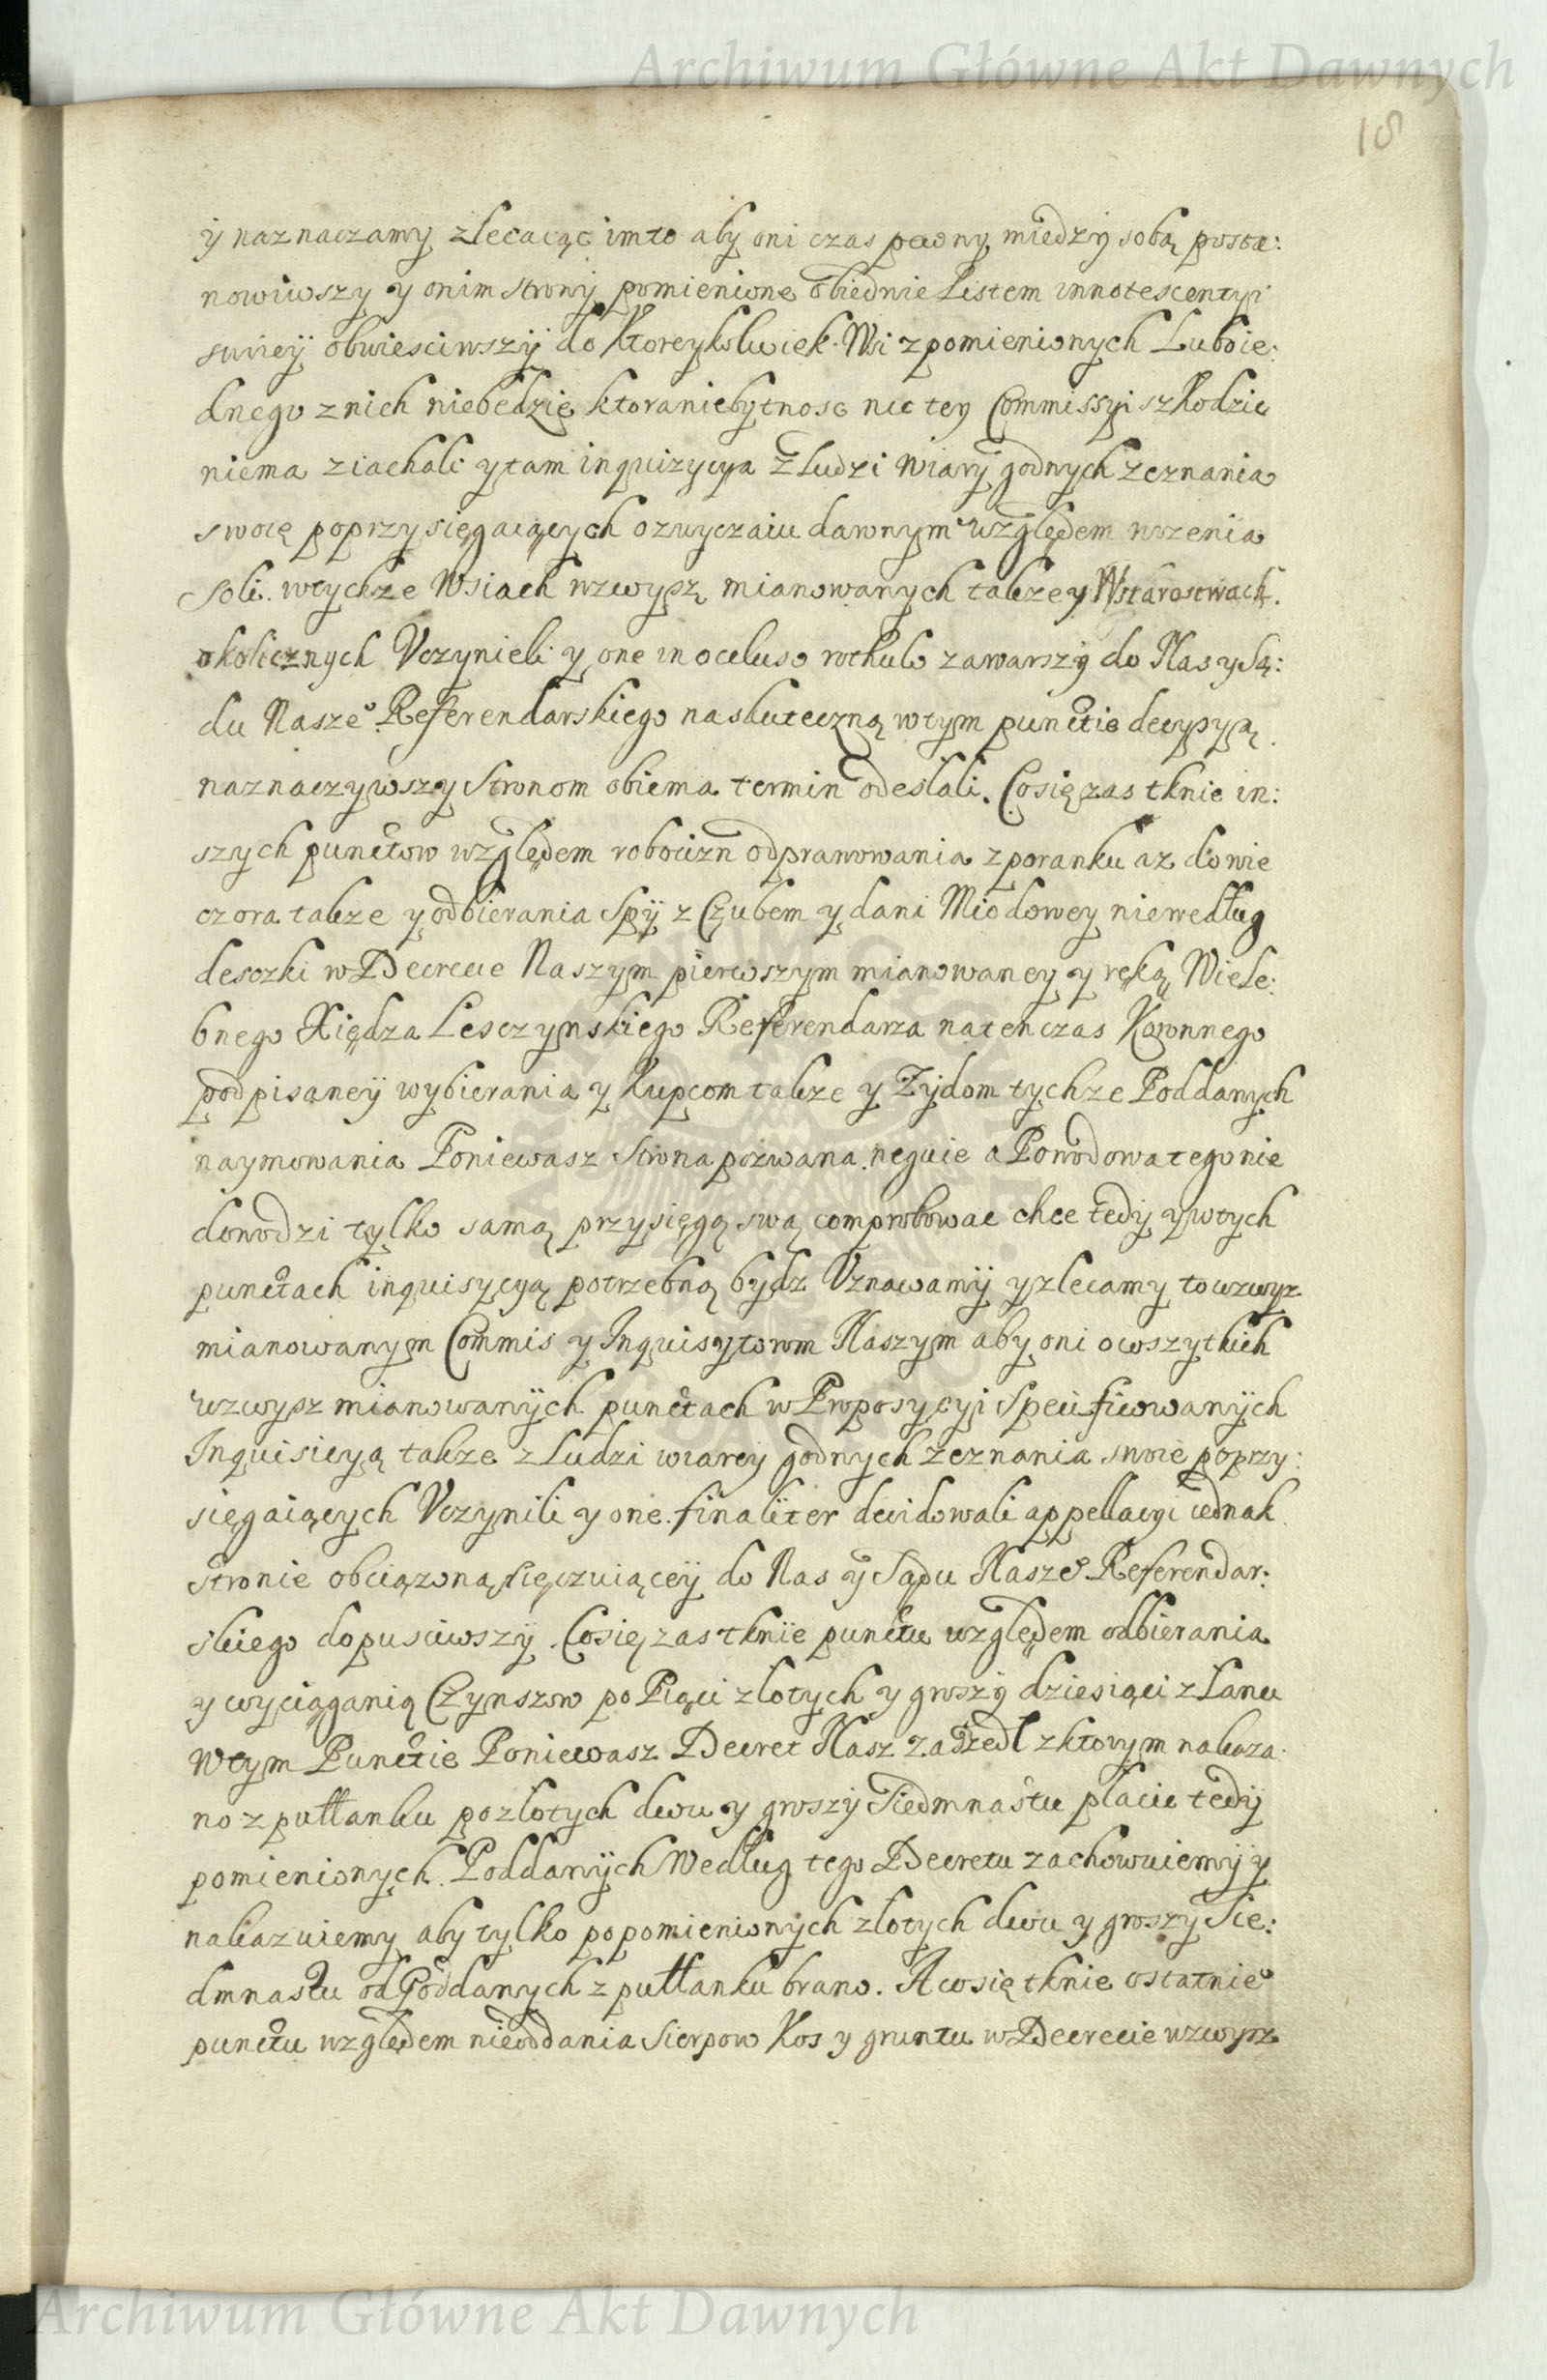 Archiwum Główne Akt Dawnych
18
ÿ naznaczamy zlecaiąc im to aby oni czas pewny miedzy sobą posta:
nowiwszy y onim strony pomienione obiednie Listem innotescentyi
swoieÿ obwiesciwszÿ do ktoreykolwiek Wsi zpomienionych Lubo ie:
dnego znich niebędzie ktora niebytnosc nic tey Commissyi szkodzic
niema ziachali y tam inquizycya z Ludzi wiary godnych zeznania
swoię poprzysięgaiących ozwyczaiu dawnym względem wrzenia
Soli wtychze Wsiach wzwysz mianowanych takze y Wstarostwach
okolicznych Vczynieli y one in ocluso rothulo zawarszy do Nas y Są:
du Nasze° Referendarskiego na skuteczną wtym punctie decyzyą
naznaczywszy Stronom obiema termin odeslali. Co się zas tknie in:
szych punctow względem robocizn odprawowania z poranku az do wie
czora takze y odbierania Spÿ z Czubem y dani Miodowey niewedług
desczki w Decrecie Naszym pierwszym mianowaney y ręką Wiele:
bnego Xiędza Lesczynskiego Referendarza natenczas Koronnego
podpisaneÿ wybierania y kupcom takze y Zydom tychze Poddanych
naymowania Poniewasz Strona pozwana neguie a Powodowa tego nie
dowodzi tylko samą przysięgą swą comprobowac chce tedy y wtych
punctach inquisycyą potrzebną bydz Vznawamÿ y zlecamy to wzwyz
mianowanym Commis y Inquisytorom Naszym aby oni o wszytkich
wzwysz mianowanÿch punctach w Proposycyi Specifikowanÿch
Inquisicyą takze z Ludzi wiarey godnych zeznania swoie poprzy:
sięgaiących Vczynili y one finaliter decidowali appellacyi iednak
stronie obciązoną się czuiąceÿ do Nas ÿ Sądu Nasze° Referendar:
skiego dopusciwszÿ. Co się zas tknïe punctu względem odbierania
y wyciągania Czynszow po Pięci zlotych y groszy dziesiąci z Lanu
Wtym Punctie Poniewasz Decret Nasz zaszedl zktorym nakaza:
no z pułłanku po zlotych dwu y groszÿ Siedmnastu placic tedÿ
pomienionych Poddanÿch Według tego Decretu zachowuiemÿ y
nakazuiemy aby tylko po pomienionych zlotych dwu y groszy Sie:
dmnastu od Poddanych z pułłanku brano. A co się tknie ostatnie°
punctu względem nieoddania Sierpow Kos y gruntu w Decrecie wzwysz
Archiwum Główne Akt Dawnych